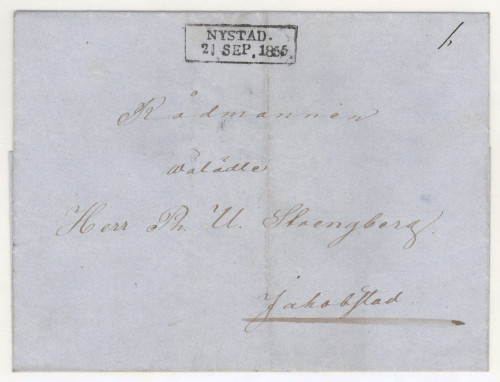 NYSTAD.
21 SEP. 1855
Rådmannen
Wälädle
Herr Ph. U. Strengberg.
Jakobstad